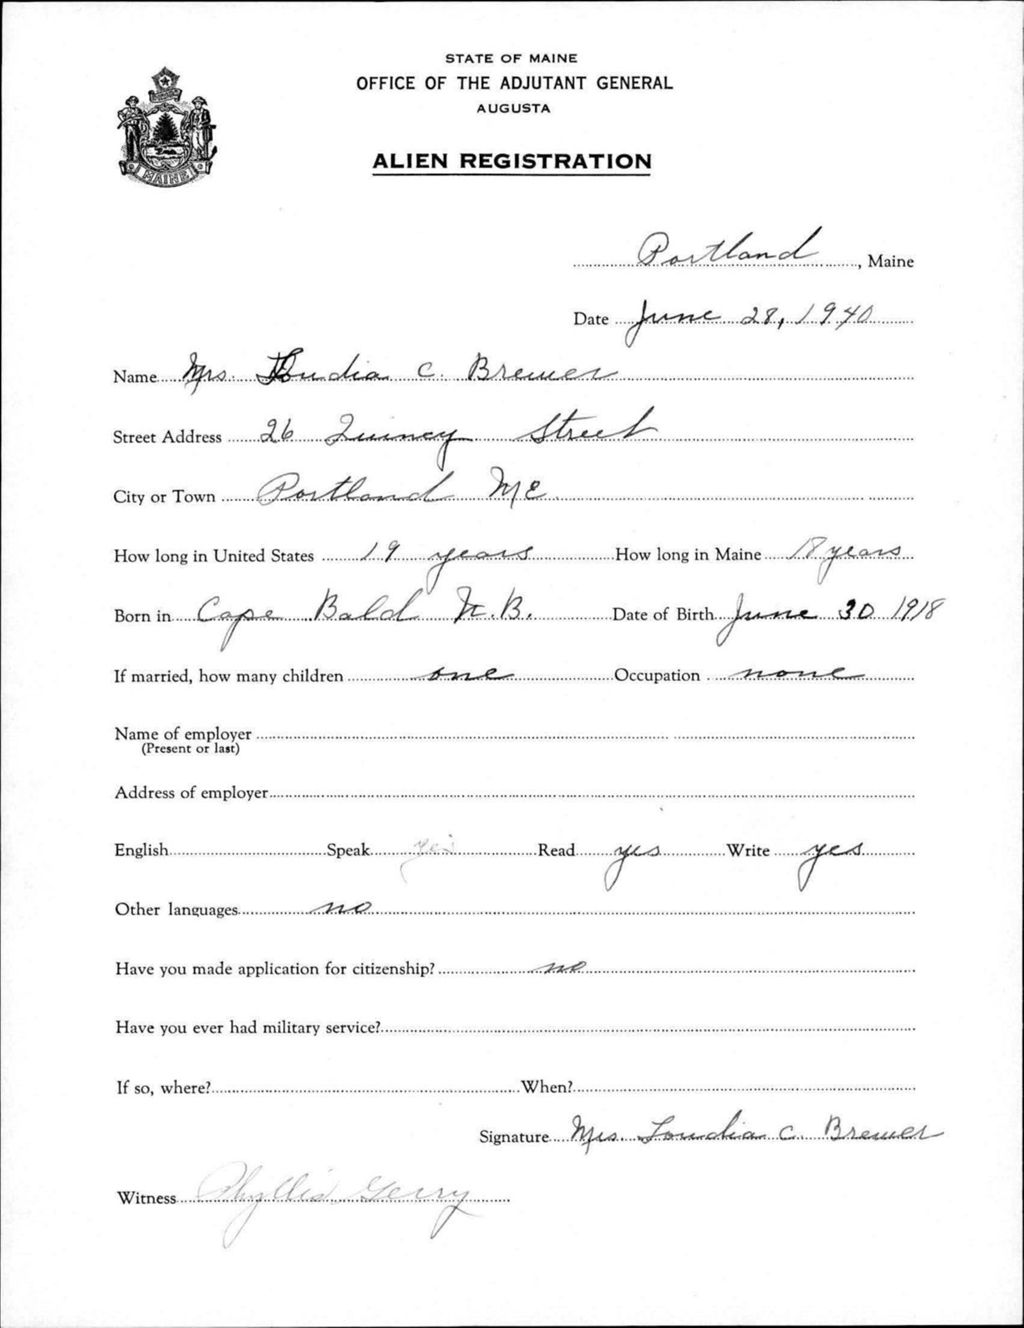 STATE OF MAINE
OFFICE OF THE ADJUTANT GENERAL
AUGUSTA
ALIEN REGISTRATION
MAINE
Portland, Maine
Date June 28, 1940
Name Mrs. C. Brewer
Street Address 26 Quincy Street
City or Town Portland ME.
How long in United States 19 years How long in Maine 18 years
Born in Cape Bald N.B. Date of Birth June 30 1918
If married, how many children one Occupation none
Name of employer
(Present or last)
Address of employer
English Speak yes Read yes Write yes
Other languages no
Have you made application for citizenship? no
Have you ever had military service?
If so, where? When?
Signature Mrs. Loudia C. Brewer
Witness Phyllis Gerry